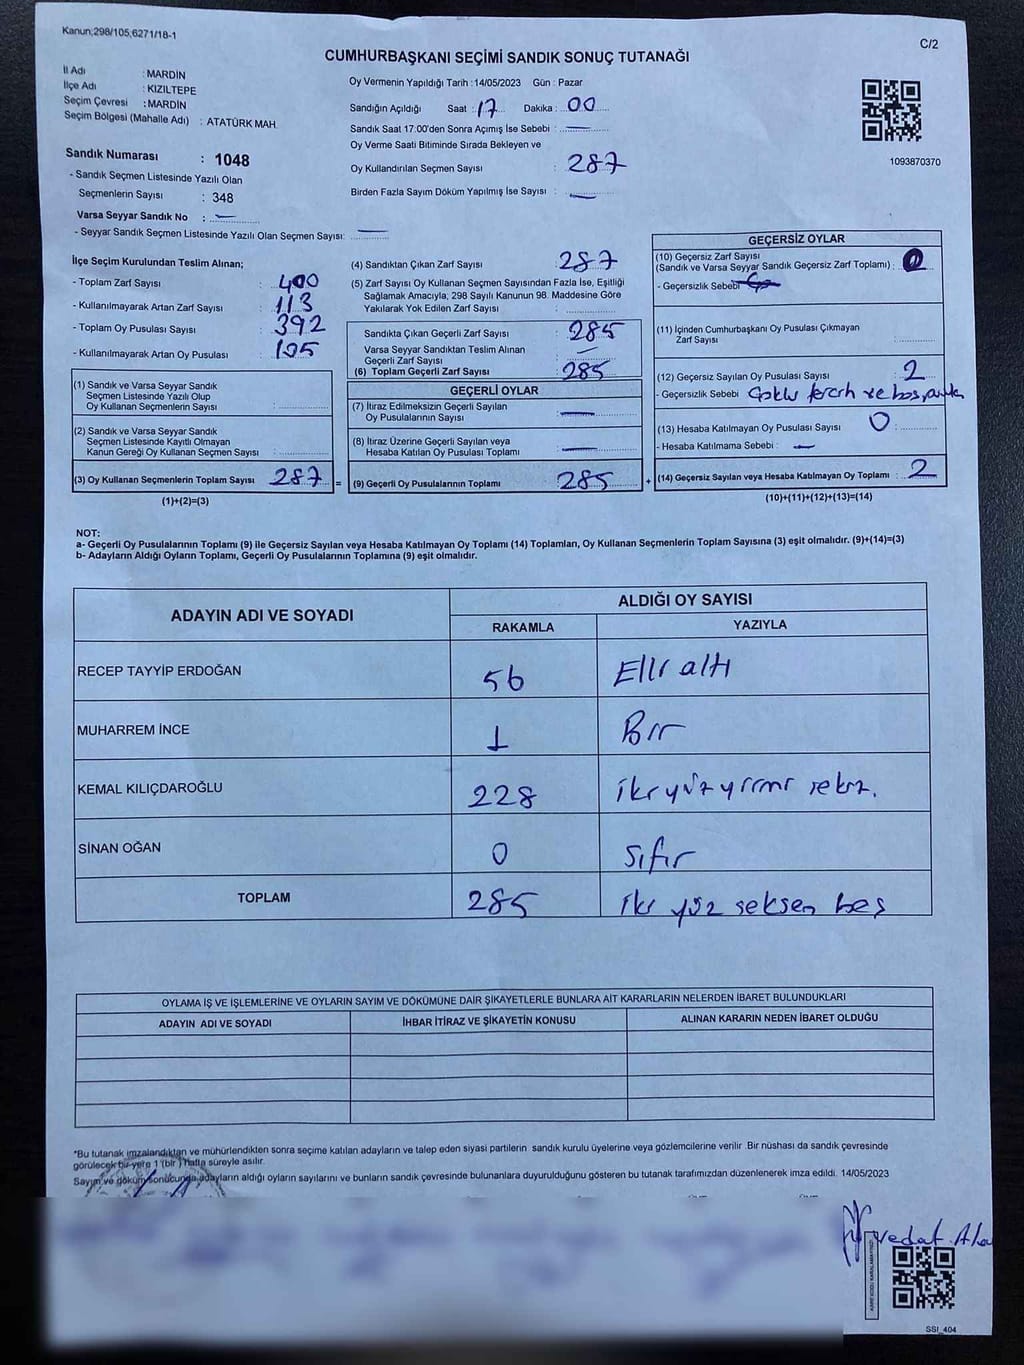 Kanun;298/105,6271/18-1
C/2
CUMHURBAŞKANI SEÇİMİ SANDIK SONUÇ TUTANAĞI
İl Adı : MARDİN
İlçe Adı : KIZILTEPE
Seçim Çevresi : MARDİN
Seçim Bölgesi (Mahalle Adı) : ATATÜRK MAH.
Sandık Numarası : 1048
- Sandık Seçmen Listesinde Yazılı Olan
Seçmenlerin Sayısı : 348
Varsa Seyyar Sandık No : —
- Seyyar Sandık Seçmen Listesinde Yazılı Olan Seçmen Sayısı: —
Oy Vermenin Yapıldığı Tarih : 14/05/2023 Gün : Pazar
Sandığın Açıldığı Saat : 17 Dakika : 00
Sandık Saat 17:00'den Sonra Açımış İse Sebebi : —
Oy Verme Saati Bitiminde Sırada Bekleyen ve
Oy Kullandırılan Seçmen Sayısı : 287
Birden Fazla Sayım Döküm Yapılmış İse Sayısı : —
1093870370
İlçe Seçim Kurulundan Teslim Alınan;
- Toplam Zarf Sayısı : 400
- Kullanılmayarak Artan Zarf Sayısı : 113
- Toplam Oy Pusulası Sayısı : 392
- Kullanılmayarak Artan Oy Pusulası : 105
(1) Sandık ve Varsa Seyyar Sandık
Seçmen Listesinde Yazılı Olup
Oy Kullanan Seçmenlerin Sayısı :
(2) Sandık ve Varsa Seyyar Sandık
Seçmen Listesinde Kayıtlı Olmayan
Kanun Gereği Oy Kullanan Seçmen Sayısı :
(3) Oy Kullanan Seçmenlerin Toplam Sayısı : 287 =
(1)+(2)=(3)
(4) Sandıktan Çıkan Zarf Sayısı : 287
(5) Zarf Sayısı Oy Kullanan Seçmen Sayısından Fazla İse, Eşitliği
Sağlamak Amacıyla; 298 Sayılı Kanunun 98. Maddesine Göre
Yakılarak Yok Edilen Zarf Sayısı :
Sandıkta Çıkan Geçerli Zarf Sayısı : 285
Varsa Seyyar Sandıktan Teslim Alınan
Geçerli Zarf Sayısı : —
(6) Toplam Geçerli Zarf Sayısı : 285
GEÇERLİ OYLAR
(7) İtiraz Edilmeksizin Geçerli Sayılan
Oy Pusulalarının Sayısı : —
(8) İtiraz Üzerine Geçerli Sayılan veya
Hesaba Katılan Oy Pusulası Toplamı : —
(9) Geçerli Oy Pusulalarının Toplamı : 285 +
GEÇERSİZ OYLAR
(10) Geçersiz Zarf Sayısı
(Sandık ve Varsa Seyyar Sandık Geçersiz Zarf Toplamı) : 0
- Geçersizlik Sebebi
(11) İçinden Cumhurbaşkanı Oy Pusulası Çıkmayan
Zarf Sayısı :
(12) Geçersiz Sayılan Oy Pusulası Sayısı : 2
- Geçersizlik Sebebi Çoklu tercih ve boş
(13) Hesaba Katılmayan Oy Pusulası Sayısı : 0
- Hesaba Katılmama Sebebi : —
(14) Geçersiz Sayılan veya Hesaba Katılmayan Oy Toplamı : 2
(10)+(11)+(12)+(13)=(14)
NOT:
a- Geçerli Oy Pusulalarının Toplamı (9) ile Geçersiz Sayılan veya Hesaba Katılmayan Oy Toplamı (14) Toplamları, Oy Kullanan Seçmenlerin Toplam Sayısına (3) eşit olmalıdır. (9)+(14)=(3)
b- Adayların Aldığı Oyların Toplamı, Geçerli Oy Pusulalarının Toplamına (9) eşit olmalıdır.
ADAYIN ADI VE SOYADI
ALDIĞI OY SAYISI
RAKAMLA YAZIYLA
RECEP TAYYİP ERDOĞAN 56 Elli altı
MUHARREM İNCE 1 Bir
KEMAL KILIÇDAROĞLU 228 iki yüz yirmi sekiz.
SİNAN OĞAN 0 Sıfır
TOPLAM 285 iki yüz seksen beş
OYLAMA İŞ VE İŞLEMLERİNE VE OYLARIN SAYIM VE DÖKÜMÜNE DAİR ŞİKAYETLERLE BUNLARA AİT KARARLARIN NELERDEN İBARET BULUNDUKLARI
ADAYIN ADI VE SOYADI İHBAR İTİRAZ VE ŞİKAYETİN KONUSU ALINAN KARARIN NEDEN İBARET OLDUĞU
*Bu tutanak imzalandıktan ve mühürlendikten sonra seçime katılan adayların ve talep eden siyasi partilerin sandık kurulu üyelerine veya gözlemcilerine verilir .Bir nüshası da sandık çevresinde
görülecek bir yere 1 (bir ) hafta süreyle asılır.
Sayım ve döküm sonucunda adayların aldığı oyların sayılarını ve bunların sandık çevresinde bulunanlara duyurulduğunu gösteren bu tutanak tarafımızdan düzenlenerek imza edildi. 14/05/2023
vedat
SSI_404